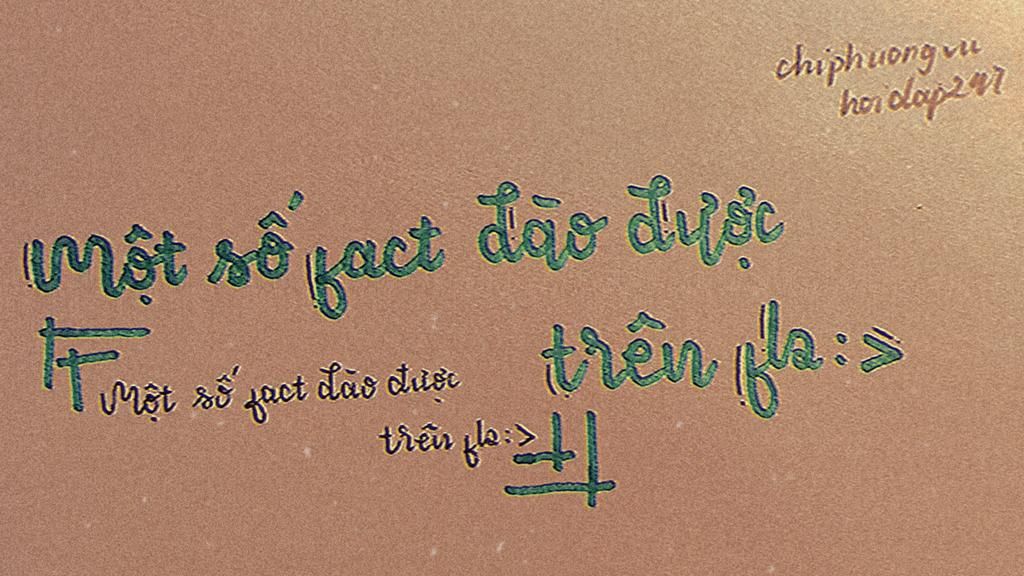 chiphuongvu
hoidap247
Một số fact đào được
trên fb:>
Một số fact đào được
trên fb:>